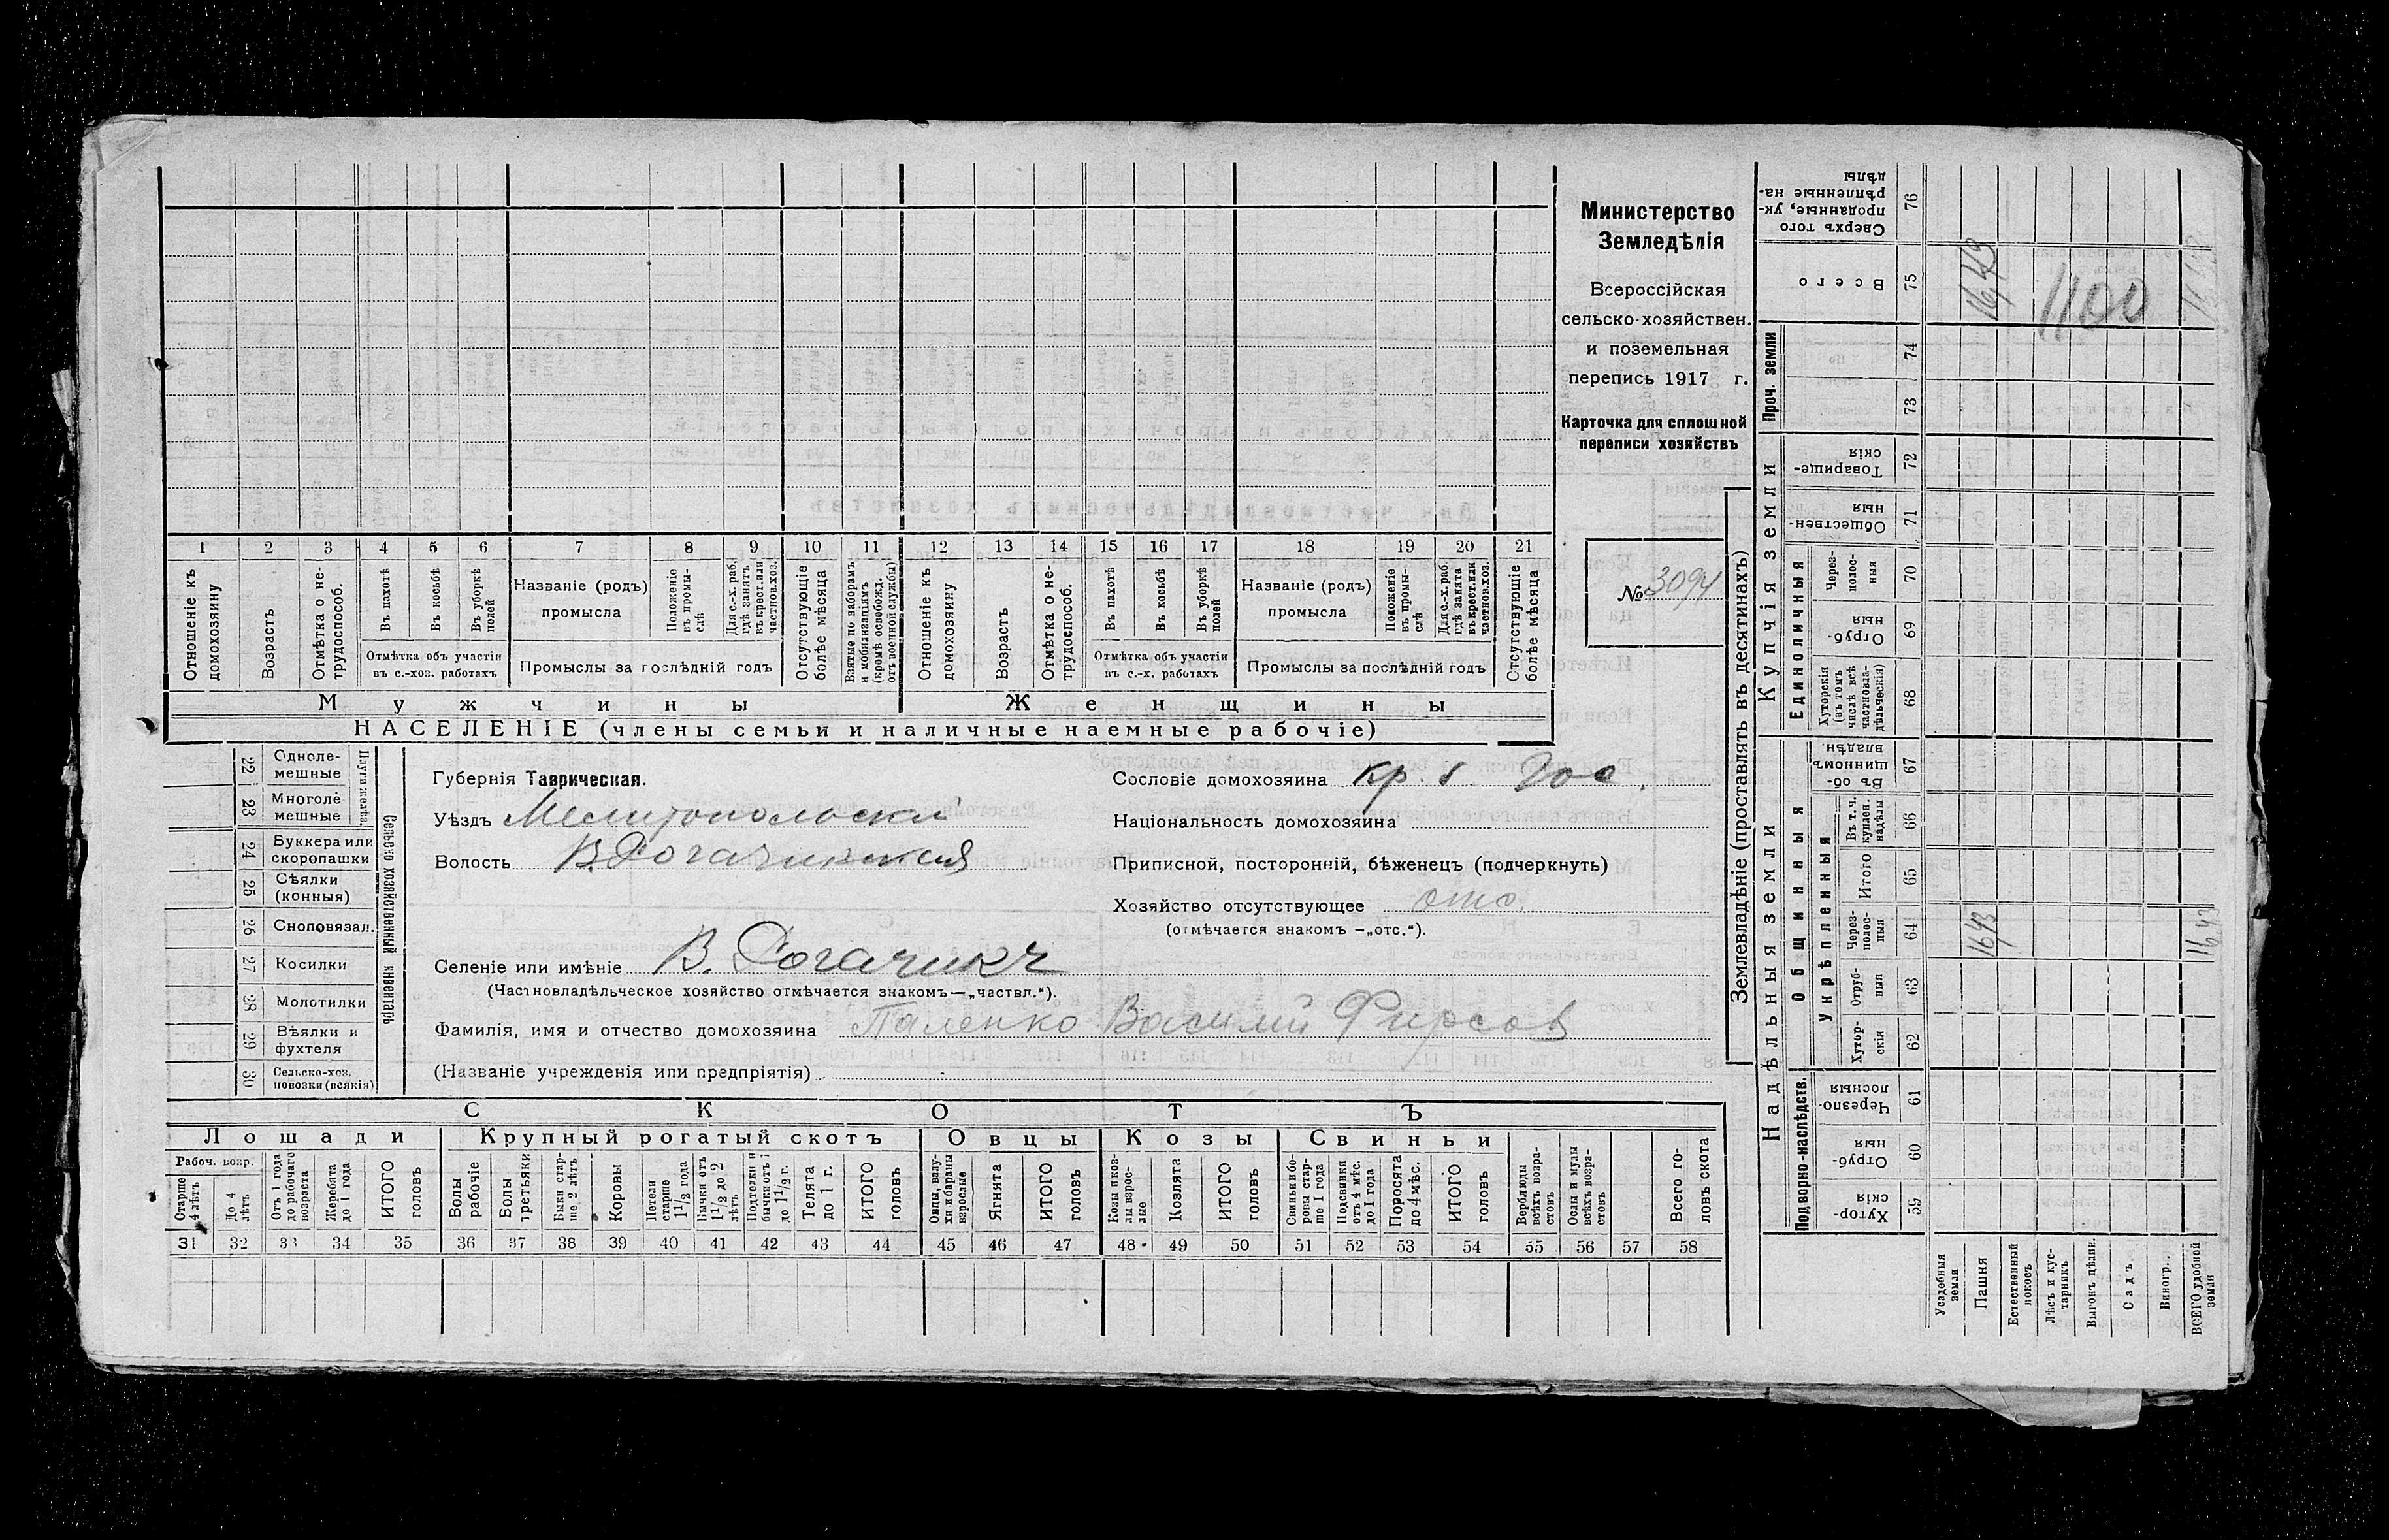 Министерство
Земледѣлія
Всероссійская
сельско-хозяйствен.
и поземельная
перепись 1917 г.
Карточка для сплошной
переписи хозяйствъ
№ 3094
1 2 3 4 5 6 7 8 9 10 11 12 13 14 15 16 17 18 19 20 21
Отношеніе къ домохозяину
Возрастъ
Отмѣтка о не-трудоспособ.
Въ пахотѣ
Въ косьбѣ
Въ уборкѣ полей
Отмѣтка объ участіи въ с.-хоз. работахъ
Названіе (родъ) промысла
Положеніе въ промы-слѣ
Для с.-х. раб., гдѣ занятъ въ крест. или частнов. хоз.
Промыслы за послѣдній годъ
Отсутствующіе болѣе мѣсяца
Взятые по наборамъ и мобилизаціямъ (кромѣ освобожд. отъ военной службы)
Отношеніе къ домохозяину
Возрастъ
Отмѣтка о не-трудоспособ.
Въ пахотѣ
Въ косьбѣ
Въ уборкѣ полей
Отмѣтка объ участіи въ с.-х. работахъ
Названіе (родъ) промысла
Положеніе въ промы-слѣ
Для с.-х. раб. гдѣ занята въ крест. или частнов. хоз.
Промыслы за послѣдній годъ
Отсутствующіе болѣе мѣсяца
Мужчины Женщины
НАСЕЛЕНІЕ (члены семьи и наличные наемные рабочіе)
22 Одноле-мешные
23 Многоле мешные
Плуги желѣз.
24 Буккера или скоропашки
25 Сѣялки (конныя)
26 Сноповязал.
27 Косилки
28 Молотилки
29 Вѣялки и фухтеля
30 Сельско-хоз. повозки (всякія)
Сельско хозяйственный инвентарь
Губернія Таврическая.
Уѣздъ Мелитопольскій
Волость В. Рогачикская
Селеніе или имѣніе В. Рогачикъ
(Частновладѣльческое хозяйство отмѣчается знакомъ—„частвл.“).
Фамилія, имя и отчество домохозяина Паленко Василій Фирсов
(Названіе учрежденія или предпріятія)
Сословіе домохозяина кр.
Національность домохозяина
Приписной, посторонній, бѣженецъ (подчеркнуть)
Хозяйство отсутствующее отс.
(отмѣчается знакомъ —„отс.“).
СКОТЪ
Лошади Крупный рогатый скотъ Овцы Козы Свиньи
Рабоч. возр.
Старше 4 лѣтъ
До 4 лѣтъ
Отъ 1 года до рабочаго возраста
Жеребята до 1 года
ИТОГО головъ
Волы рабочіе
Волы третьяки
Быки стар-ше 2 лѣтъ
Коровы
Нетели старше 1 1/2 года
Бычки отъ 1 1/2 до 2 лѣтъ
Подтелки и бычки отъ 1 до 1 1/2 г.
Телята до 1 г.
ИТОГО головъ
Овцы, валу-хи и бараны взрослые
Ягнята
ИТОГО головъ
Козы и коз-лы взрос-лые
Козлята
ИТОГО головъ
Свиньи и бо-ровы стар-ше 1 года
Подсвинки отъ 4 мѣс. до 1 года
Поросята до 4 мѣс.
ИТОГО головъ
Верблюды всѣхъ возра-стовъ
Ослы и мулы всѣхъ возра-стовъ
Всего го-ловъ скота
31 32 33 34 35 36 37 38 39 40 41 42 43 44 45 46 47 48 49 50 51 52 53 54 55 56 57 58
Землевладѣніе (проставлять въ десятинахъ)
Надѣльныя земли
Купчія земли
Проч. земли
Подворно-наслѣдств.
Общинныя
Укрѣпленныя
Единоличныя
Сверхъ того проданные, ук-рѣпленные на-дѣлы 76
Всего 75 16,43 1100
74
73
Товарище-скія 72
Обществен-ныя 71
Через-полос-ныя 70
Отруб-ныя 69
Хуторскія (въ томъ числѣ всѣ частновла-дѣльческія) 68
Въ об-щинномъ владѣн. 67
Въ т. ч. куплен. надѣлы 66
Итого 65
Через-полос-ныя 64 1643
Отруб-ныя 63
Хутор-скія 62
Черезпо-лосныя 61
Отруб-ныя 60
Хутор-скія 59
Усадебныя земли
Пашня
Естественный покосъ
Лѣсъ и кус-тарникъ
Выгонъ цѣлин.
Садъ
Виногр.
ВСЕГО удобной земли